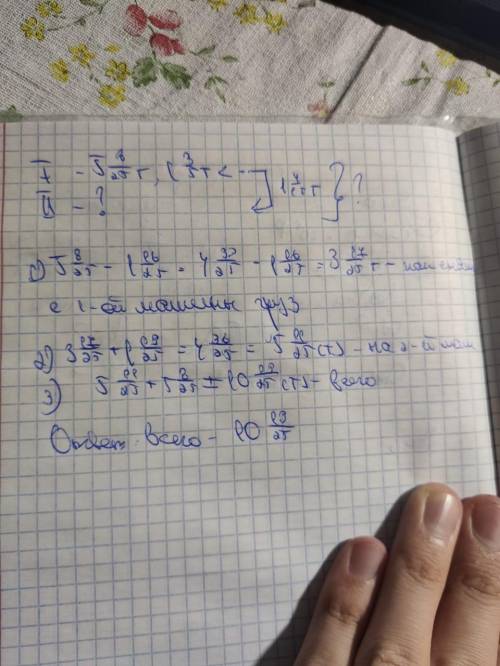 I - 5 8/25 т, 1 3/5 т < 1 т } ?
II - ?
1) 5 8/25 - 1 16/25 = 4 33/25 - 1 16/25 = 3 17/25 т -
с 1-ой машины груз
2) 3 17/25 + 1 19/25 = 4 36/25 = 5 11/25 (т) - на 2-ой маш
3) 5 11/25 + 5 8/25 = 10 19/25 (т) - всего
Ответ: всего - 10 19/25